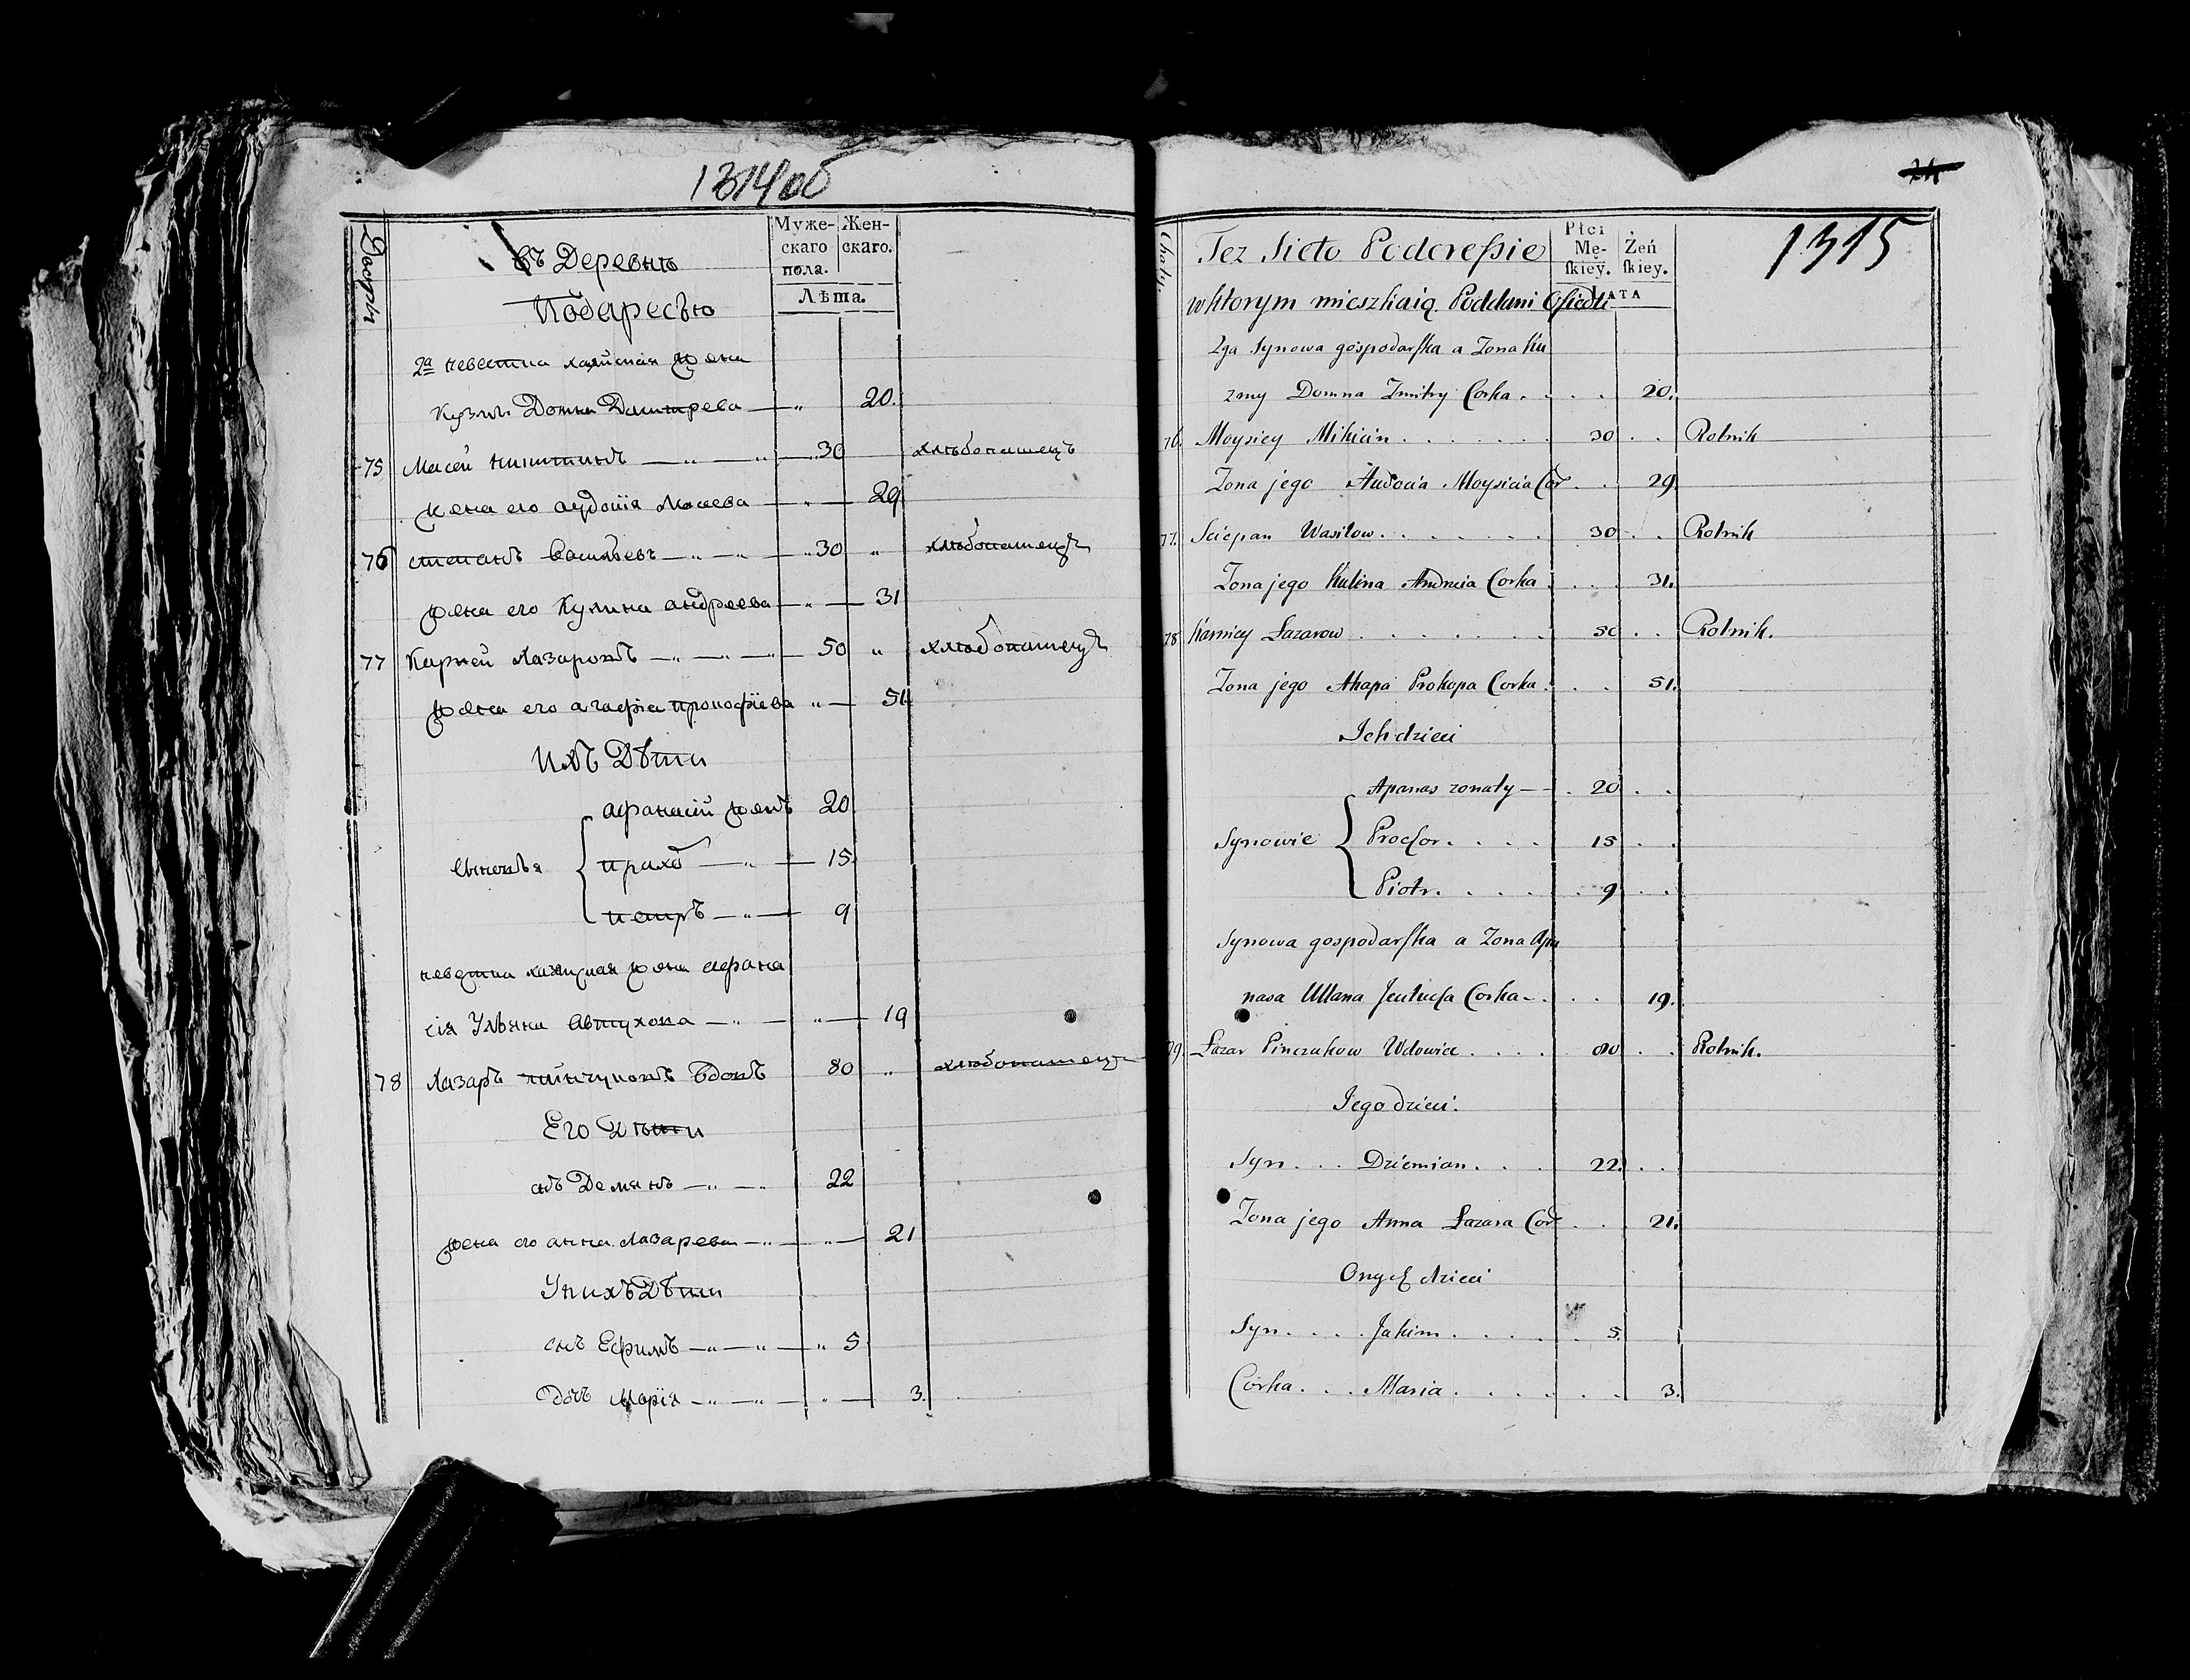 1314об
Дворы
Въ Деревнѣ
Подаресью
Муже-
скаго
пола.
Жен-
скаго.
Лѣта.
2я невестка хазяйская жена
Кузмы Домна Дмитрева — „ 20.
75 Мосей Никитинъ — „ — „ — 30 хлѣбопашецъ
жена его аудотія Мосеева — „ — 29
76 степанъ Васильевъ — „ — „ 30 „ хлѣбопашецъ
жена его Кулина андреева — „ — 31
77 Карней Лазаровъ — „ — „ — 50 „ хлѣбопашецъ
жена его агафія прокофіева „ — 51.
Ихъ Дѣти
сыновья
афанасій женъ 20
прахо — „ — 15.
петръ — „ — 9
невестка хазяйская жена афана
сія Ульяна Автухова — „ — „ — 19
78 Лазаръ пинчуковъ Вдовъ 80 „ хлѣбопашецъ
Его Дѣти
снъ Демянъ — „ — 22
жена его анна Лазарева — „ — „ — 21
У нихъ Дѣти
снъ Ефимъ — „ — „ — „ 5
Дочь Марія — „ — „ — „ — 3.
24
1315
Chaty.
Też Sieło Podoreſsie
w ktorym mieszkaią Poddani Osiedli
Płci
Mę-
ſkiey.
Żeń
ſkiey.
LATA
2ga Synowa gospodarſka a Zona Ku
zmy Domna Zmitry Corka . . . . 20.
76. Moysiey Mikicin . . . . . . . 30 . . Rolnik
Zona jego Audocia Moysieia Cor . . 29.
77. Sciepan Wasilow . . . . . . . 30 . . Rolnik
Zona jego Kulina Andreia Corka . . . . 31.
78 Karniey Łazarow . . . . . . . 50 . . Rolnik.
Zona jego Ahapa Prokopa Corka . . . 51.
Ich dzieci
Synowie
Apanas zonaty — — . 20 . .
Prochor . . . . 15 . .
Piotr . . . . . 9 . .
Synowa gospodarſka a Zona Apa
nasa Ullana Jeutucha Corka . . . . 19.
79. Łazar Pinczukow Wdowiec . . . . 80 . . Rolnik.
Jego dzieci.
Syn . . . Dziemian . . . 22. . .
Zona jego Anna Łazara Cor . . 21.
Onych dzieci
Syn . . . . Jakim . . . . . 5.
Córka . . . Maria . . . . . . 3.